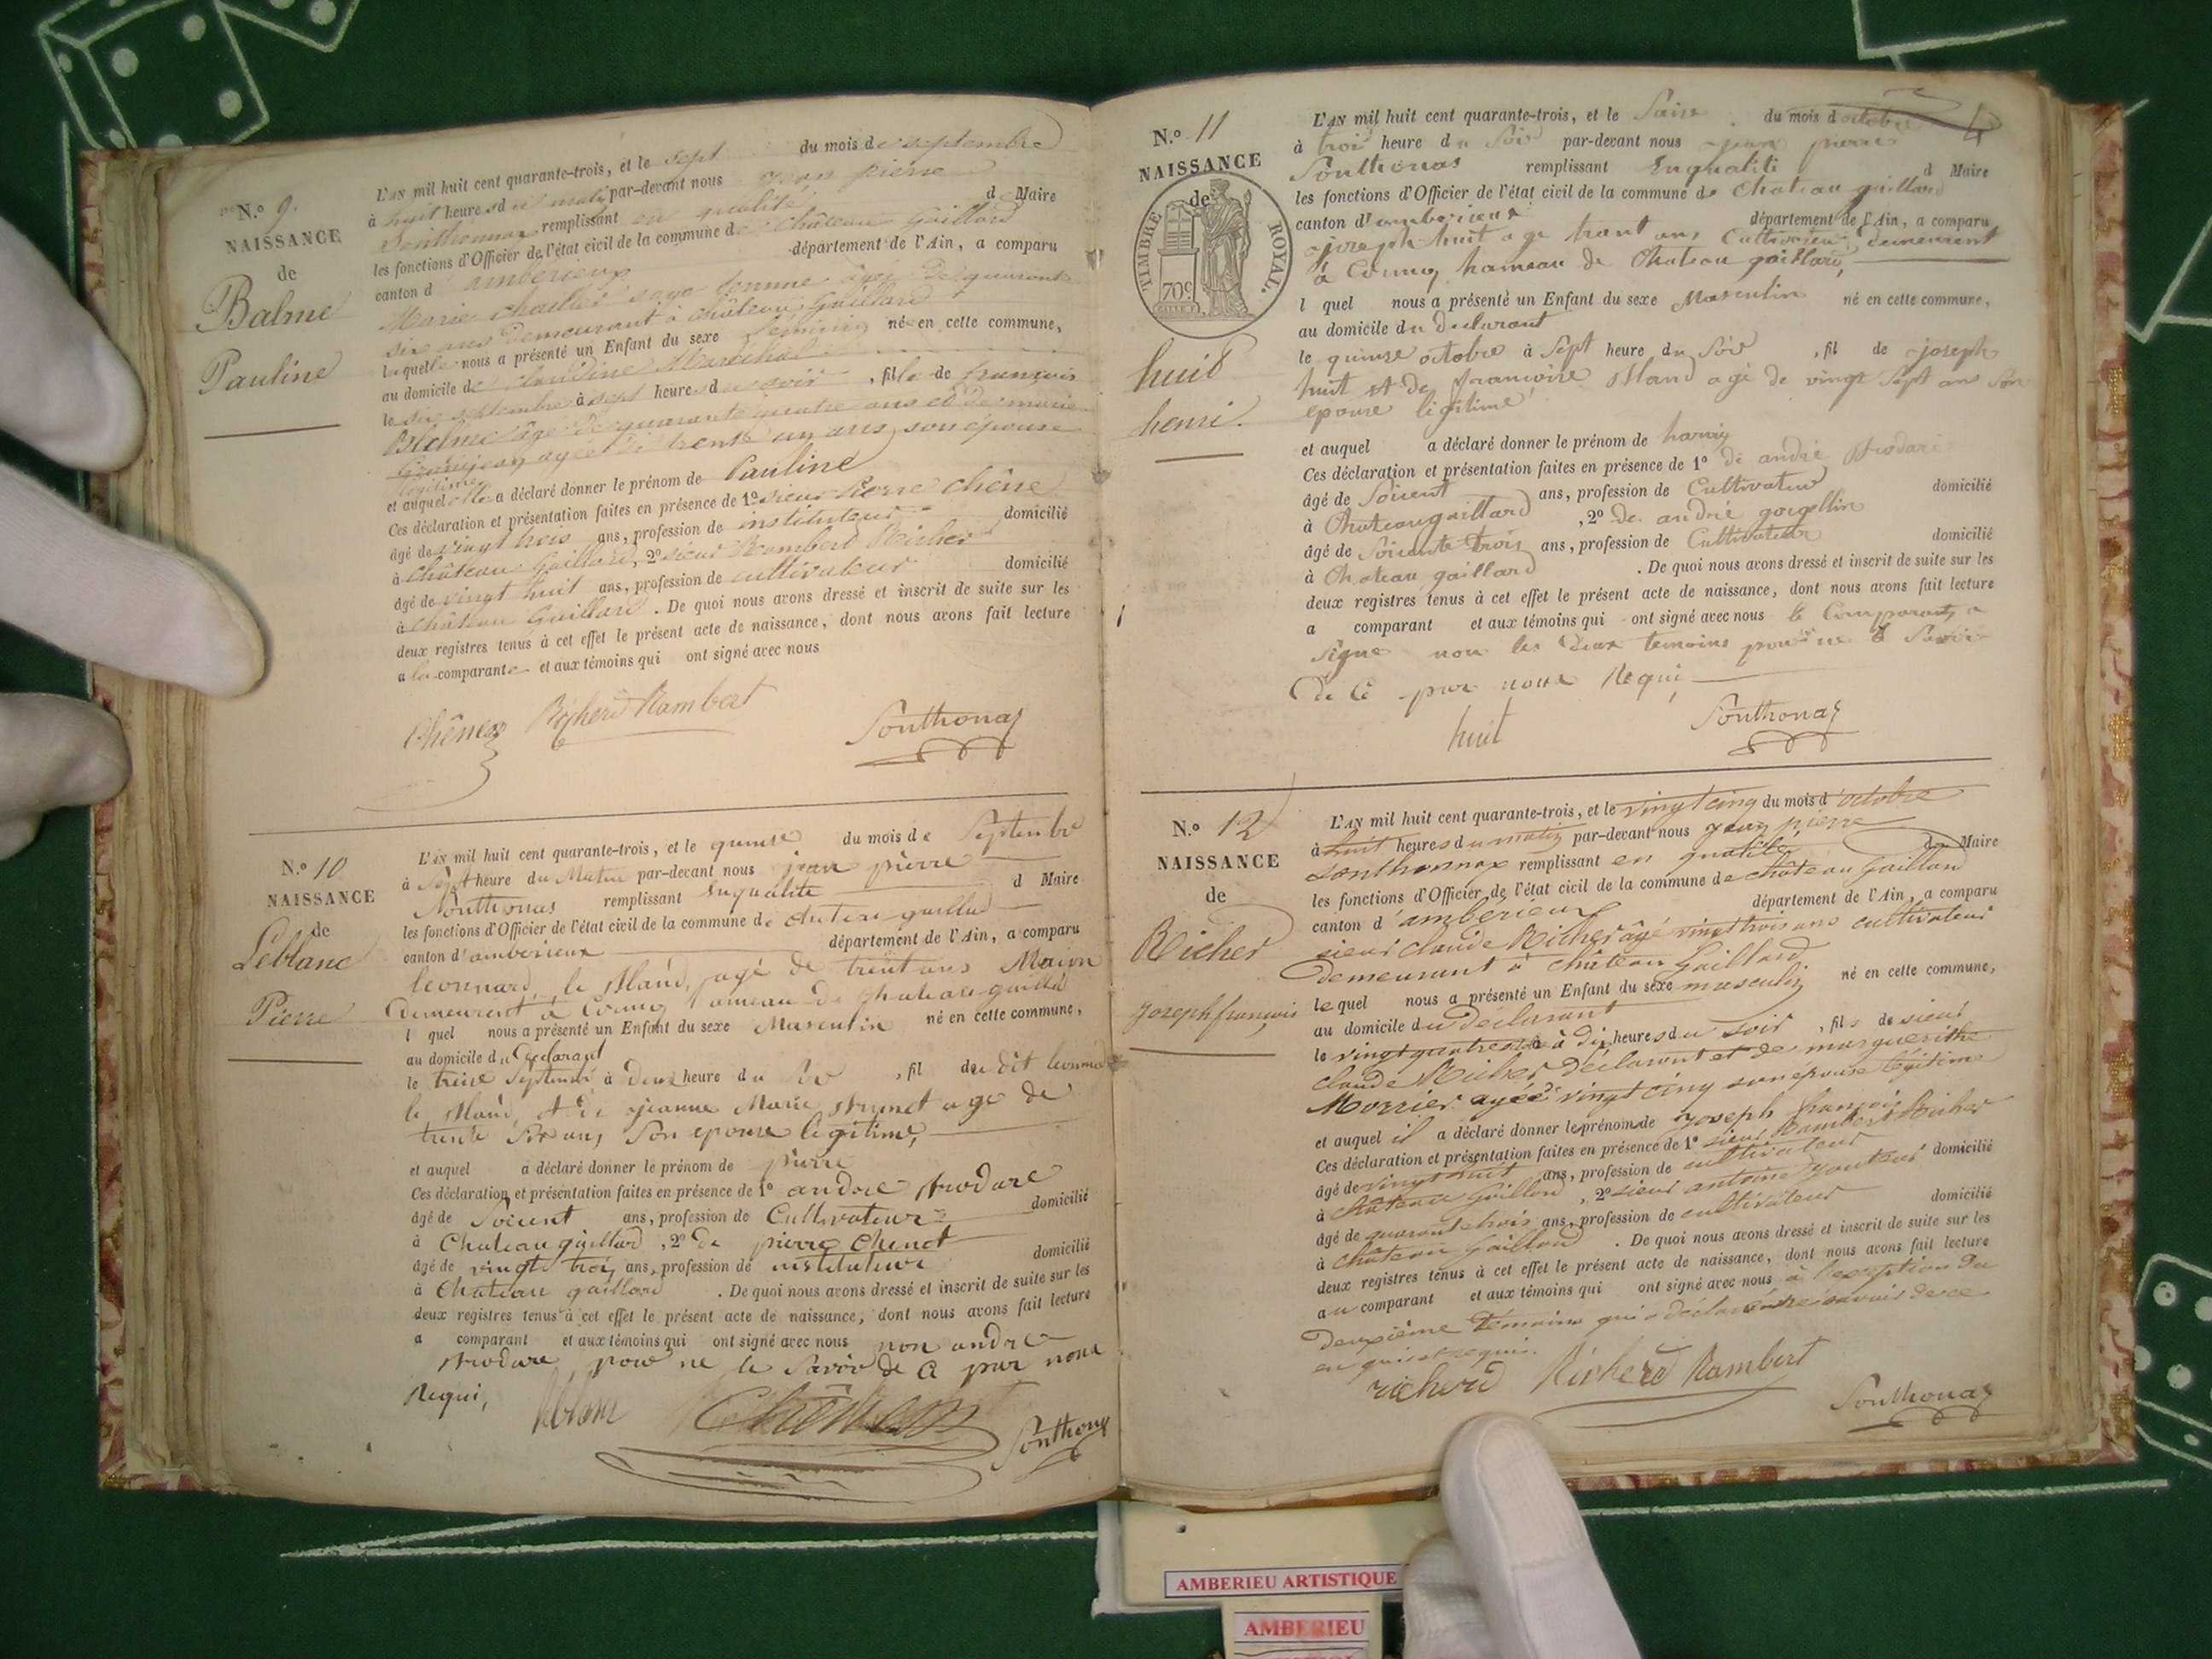 N.º 9.
NAISSANCE
de
Balme
Pauline
L'AN mil huit cent quarante-trois, et le sept du mois de septembre
à huit heures du matin par-devant nous jean pierre
Sonthonnax remplissant en qualité d Maire
les fonctions d'Officier de l'état civil de la commune de Château Gaillard
canton d ambérieux département de l'Ain, a comparu
Marie challier sage femme âgée de quarante
six ans demeurant à château Gaillard
laquelle nous a présenté un Enfant du sexe féminin née en cette commune,
au domicile de claudine Maréchal
le six septembre à sept heures du soir, fille de françois
Balme âgé de quarante quatre ans et de marie
âgée de trente un ans, son épouse
légitime
et auquel elle a déclaré donner le prénom de Pauline
Ces déclaration et présentation faites en présence de 1º sieur Pierre chêne
âgé de vingt trois ans, profession de instituteur domicilié
à château Gaillard, 2º sieur Rambert Richer
âgé de vingt huit ans, profession de cultivateur domicilié
à château Gaillard. De quoi nous avons dressé et inscrit de suite sur les
deux registres tenus à cet effet le présent acte de naissance, dont nous avons fait lecture
a la comparante et aux témoins qui ont signé avec nous
Richerd Rambert Sonthonax
N.º 10
NAISSANCE
de
Leblanc
Pierre
L'AN mil huit cent quarante-trois, et le quinse du mois de Septembre
à Sept heure du Matin par-devant nous jean pierre
Sonthonas remplissant Enqualité d Maire
les fonctions d'Officier de l'état civil de la commune de
canton d'amberieux département de l'Ain, a comparu
leonnard le Bland, agé de trent ans Maçon
demeurent à Cormoz hameau de chateau gaillard
l quel nous a présenté un Enfant du sexe Masculin né en cette commune,
au domicile du Declarant
le treise Septembre à Deux heure du Soir, fil du dit leonnard
le Bland, et de jeanne Marie Brunet age de
trente Six ans, Son epouse legitime,
et auquel a déclaré donner le prénom de pierre
Ces déclaration et présentation faites en présence de 1º andre Brodare
âgé de Soixent ans, profession de Cultivateur domicilié
à Chateau gaillard, 2º de pierre Chenet
âgé de vingt troi ans, profession de instituteur domicilié
à Chateau gaillard. De quoi nous avons dressé et inscrit de suite sur les
deux registres tenus à cet effet le présent acte de naissance, dont nous avons fait lecture
a comparant et aux témoins qui ont signé avec nous non andre
Brodare pour ne le Savoir de Ce par nous
Requi,
leblanc Sonthonax
N.º 11
NAISSANCE
de
TIMBRE ROYAL.
70c
huit
henri.
4
L'AN mil huit cent quarante-trois, et le Saise du mois d octobre
à troi heure du Soir par-devant nous jean pierre
Sonthonas remplissant Enqualité d Maire
les fonctions d'Officier de l'état civil de la commune de Chateau gaillard
canton d'amberieux département de l'Ain, a comparu
joseph huit age trant ans, Cultivateur, demeurent
à Cormoz hameau de Chateau gaillard,
l quel nous a présenté un Enfant du sexe Masculin né en cette commune,
au domicile du declarant
le quinse octobre à Sept heure du Soir, fil de joseph
huit et de francoise Bland agé de vingt Sept ans Son
epouse légitime
et auquel a déclaré donner le prénom de
Ces déclaration et présentation faites en présence de 1º de andré Brodare
âgé de Soixent ans, profession de Cultivateur domicilié
à Chateaugaillard, 2º de andré
âgé de Soixante trois ans, profession de Cultivateur domicilié
à Chateau gaillard. De quoi nous avons dressé et inscrit de suite sur les
deux registres tenus à cet effet le présent acte de naissance, dont nous avons fait lecture
a comparant et aux témoins qui ont signé avec nous le Comparant a
Signe non les deux temoins pour ne le Savoir
De Ce par nous Requi
huit Sonthonax
N.º 12
NAISSANCE
de
Richer
joseph françois
L'AN mil huit cent quarante-trois, et le vingt cinq du mois d'octobre
à huit heures du matin par-devant nous jean pierre
Sonthonnax remplissant en qualité de Maire
les fonctions d'Officier de l'état civil de la commune de château Gaillard
canton d'ambérieux département de l'Ain, a comparu
sieur claude Richer âgé vingt trois ans cultivateur
demeurant à château Gaillard
lequel nous a présenté un Enfant du sexe masculin né en cette commune,
au domicile du déclarant
le vingt quatre à dix heures du soir, fils de sieur
claude Richer déclarant et de marguerithe
Morrier agée de vingt cinq son epouse légitime
et auquel il a déclaré donner le prénom de joseph françois
Ces déclaration et présentation faites en présence de 1º sieur Rambert Richer
âgé de vingt huit ans, profession de cultivateur domicilié
à château Gaillard, 2º sieur antoine
âgé de quarante trois ans, profession de cultivateur domicilié
à château Gaillard. De quoi nous avons dressé et inscrit de suite sur les
deux registres tenus à cet effet le présent acte de naissance, dont nous avons fait lecture
au comparant et aux témoins qui ont signé avec nous à l'exeption du
deuxième témoins qui a déclaré ne savoir de ce
en quis et requis.
richerd Richerd Rambert
Sonthonax
AMBERIEU ARTISTIQUE
AMBERIEU